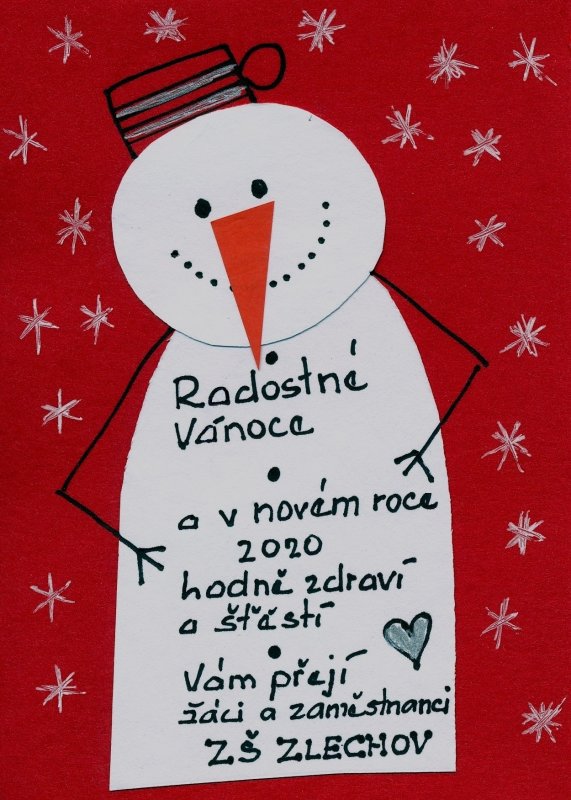 Radostné
Vánoce
a v novém roce
2020
hodně zdraví
a štěstí
Vám přejí
žáci a zaměstnanci
ZŠ ZLECHOV